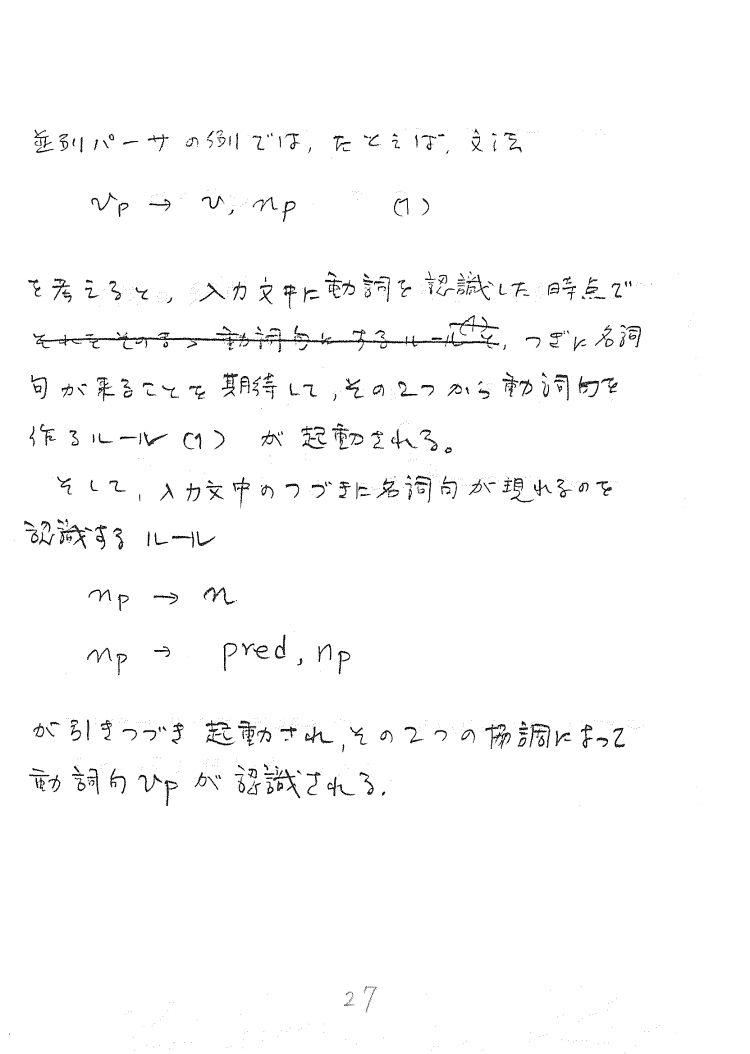 並列パーサの例では, たとえば, 文法
vp → v, np (1)
を考えると, 入力文中に動詞を認識した時点で
それをそのまゝ動詞句にするルール(1)を, つぎに名詞
句が来ることを期待して, その2つから動詞句を
作るルール (1) が起動される。
そして, 入力文中のつづきに名詞句が現れるのを
認識するルール
np → n
np → pred, np
が引きつづき起動され, その2つの協調によって
動詞句vpが認識される.
27